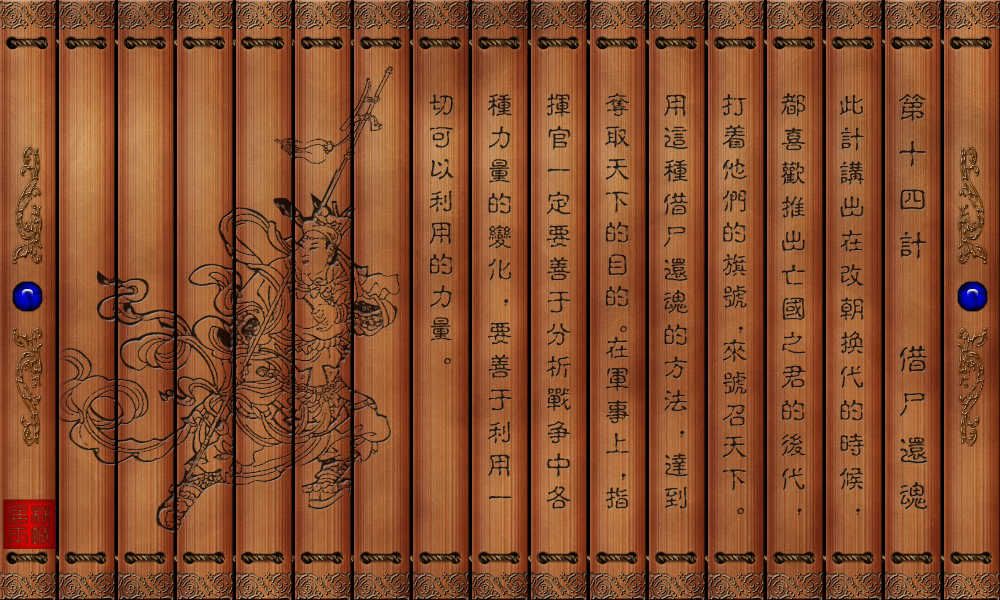 第十四計　借尸還魂
此計講出在改朝換代的時候，
都喜歡推出亡國之君的後代，
打着他們的旗號，來號召天下。
用這種借尸還魂的方法，達到
奪取天下的目的。在軍事上，指
揮官一定要善于分析戰争中各
種力量的變化，要善于利用一
切可以利用的力量。